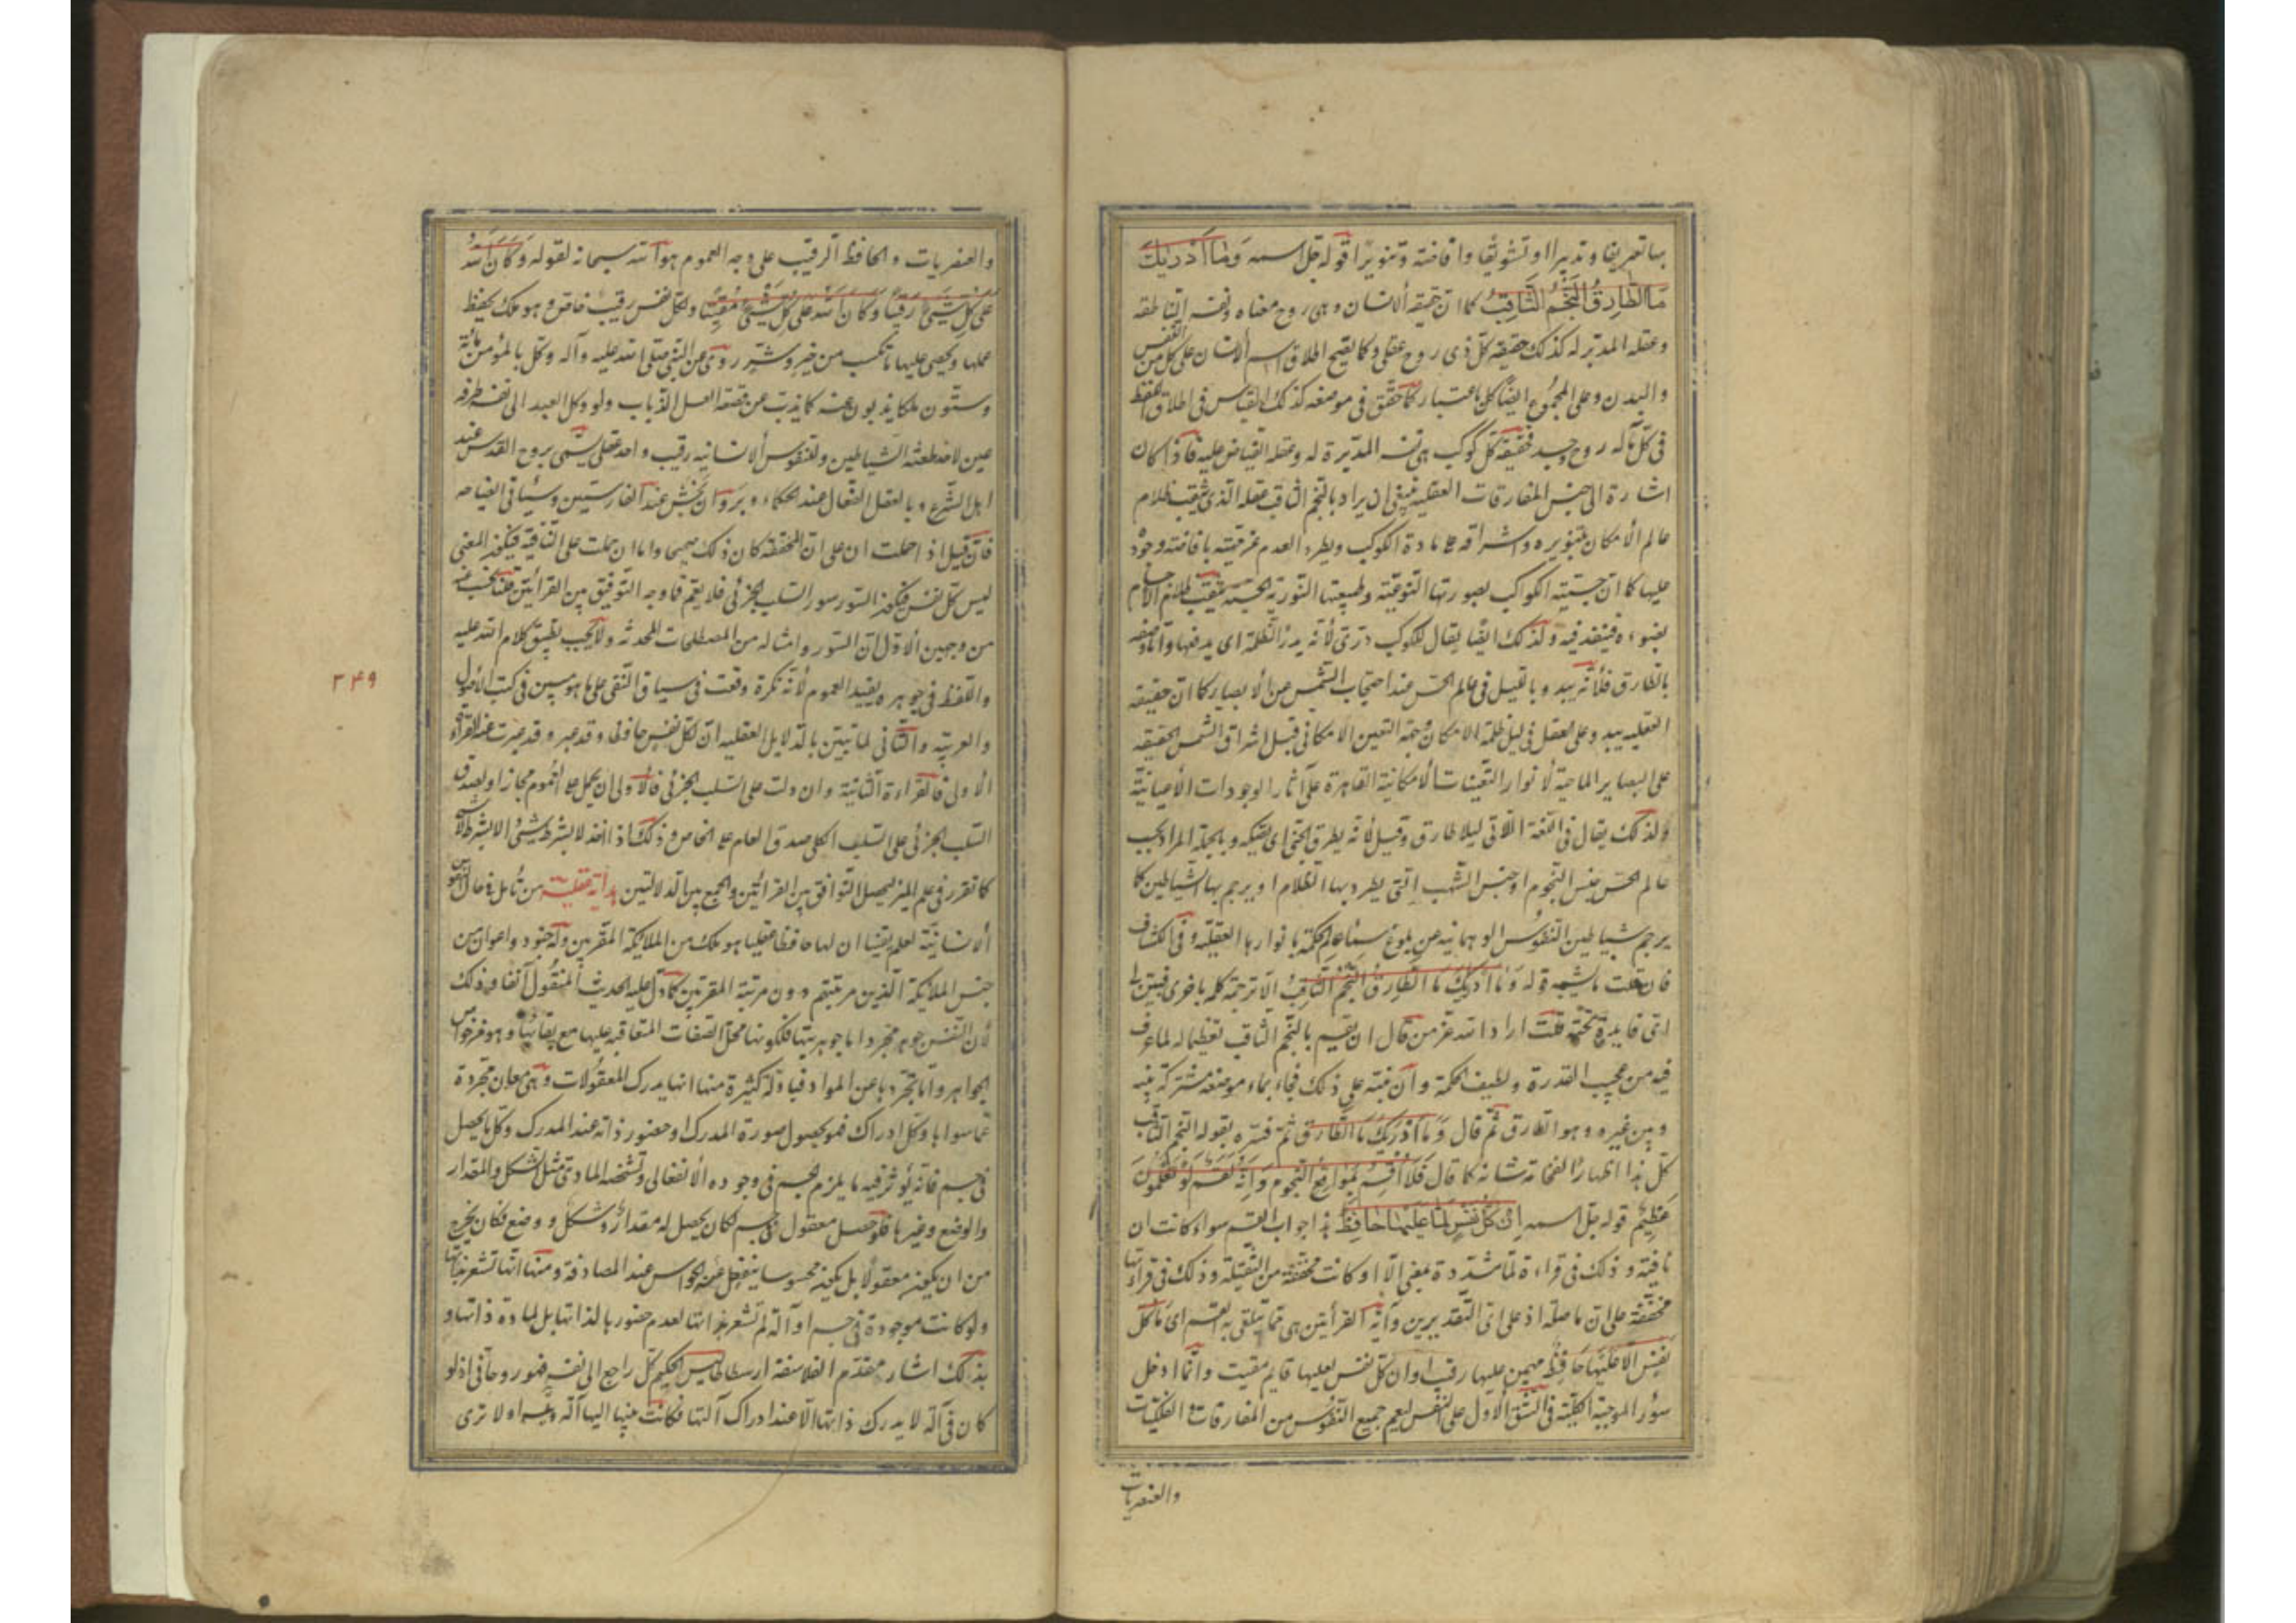 بها تعريفا وتدبيرا او تشويقا وافاضة وتنويرا قوله جل اسمه وَمَا أَدْرَيٰكَ
مَا الطَّارِقُ النَّجْمُ الثَّاقِبُ كما ان حقيقة الانسان وهي روح معناه ونفسه الناطقة
وعقله المدبر له كذلك حقيقة كل ذي روح عقلي وكما يصح اطلاق اسم الانسان على كل من النفس
والبدن وعلى المجموع ايضا كل باعتبار كما حقق في موضعه كذلك القياس في اطلاق اللفظ
في كل ما له روح وجسد فحقيقة كل كوكب هي نفسه المدبرة له وعقله الفياض عليه فاذا كان
اشارة الى جنس المفارقات العقلية فينبغي ان يراد بالنجم الثاقب عقله الذي يثقب ظلام
عالم الامكان بتنويره واشراقه على مادة الكوكب ويطرد العدم عن حقيقته بافاضته وجوده
عليها كما ان جسمية الكواكب بصورتها النوعية وطبيعتها النورية الحسية يثقب ظلام الاجسام
بضوءه فينفذ فيه ولذلك ايضا يقال للكوكب دري لانه يدرأ الظلمة اي يدفعها واما وصفه
بالطارق فلانه يبدو بالليل في عالم الحس عند احتجاب الشمس عن الابصار كما ان حقيقته
العقلية يبدو على العقل في ليل ظلمة الامكان وجهة التعين الامكاني قبل اشراق الشمس الحقيقة
على البصاير الماحية لانوار التعينات الامكانية القاهرة على آثار الوجودات الاعيانية
ولذلك يقال في اللغة للآتي ليلا طارق وقيل لانه يطرق الجني اي يصكه وبالجملة المراد بحسب
عالم الحس جنس النجوم او جنس الشهب التي يطرد بها الظلام او يرجم بها الشياطين كما
يرجم شياطين النفوس الوهمانية عن بلوغ سماء عالم الحكمة بانوارها العقلية وفي الكشاف
فان قلت ما يشبه قوله وَمَا أَدْرَيٰكَ مَا الطَّارِقُ النَّجْمُ الثَّاقِبُ الا ترجمة كلمة باخرى فبين لي
اي فايدة تحته قلت اراد الله عز من قائل ان يقسم بالنجم الثاقب تعظيما له لما عرف
فيه من عجيب القدرة ولطيف الحكمة وان نبه على ذلك فجاء بما هو صفة مشتركة بينه
وبين غيره وهو الطارق ثم قال وَمَا أَدْرَيٰكَ مَا الطَّارِقُ ثم فسره بقوله النجم الثاقب
كل هذا اظهارا لفخامة شانه كما قال فَلَا أُقْسِمُ بِمَوَاقِعِ النُّجُومِ وَإِنَّهُ لَقَسَمٌ لَوْ تَعْلَمُونَ
عَظِيمٌ قوله جل اسمه إِنْ كُلُّ نَفْسٍ لَمَّا عَلَيْهَا حَافِظٌ هذا جواب القسم سواء كانت ان
نافية وذلك في قراءة لما مشددة بمعنى الا او كانت مخففة من الثقيلة وذلك في قراءتها
مخففة على ان ما صلة اذ على اي التقديرين واية القرأتين هي مما يتلقى به القسم اي ما كل
نفس الا عليها حافظ مهيمن عليها رقيب او ان كل نفس لعليها قايم مقيت وانما ادخل
سور الموجبة الكلية في الشق الاول على النفس ليعم جميع النفوس من المفارقات والفلكيات
والعنصريات
والعنصريات والحافظ الرقيب على وجه العموم هو الله سبحانه لقوله وَكَانَ اللهُ
عَلَى كُلِّ شَيْءٍ رَقِيبًا وَكَانَ اللهُ عَلَى كُلِّ شَيْءٍ مُقِيتًا ولكل نفس رقيب خاص وهو ملك يحفظ
عملها ويحصى عليها ما تكسب من خير وشر روي عن النبي صلى الله عليه وآله وكل بالمؤمن مائة
وستون ملكا يذبون عنه كما يذب عن قصعة العسل الذباب ولو وكل العبد الى نفسه طرفة
عين لاختطفته الشياطين وللنفوس الانسانية رقيب واحد عقلي يسمى بروح القدس عند
اهل الشرع وبالعقل الفعال عند الحكماء وبروان بخش عند الفارسيين وسيأتي ايضاحه
فان قيل اذا حملت ان على ان المخففة كان ذلك صحيحا واما ان حملت على النافية فيكون المعنى
ليس كل نفس فيكون السور سور السلب الجزئي فلا يعم فما وجه التوفيق بين القرأتين قلنا يجب عنه
من وجهين الاول ان السور وامثاله من المصطلحات المحدثة ولا يجب تطبيق كلام الله عليه
واللفظ في جوهره يفيد العموم لانه نكرة وقعت في سياق النفي على ما هو مبين في كتب الاصول
والعربية والثاني لما تبين بالدلايل العقلية ان لكل نفس حافظا وقد عبرت عنه القراءة
الاولى فالقراءة الثانية وان دلت على السلب الجزئي فالاولى ان يحمل على العموم مجازا او لصدق
السلب الجزئي على السلب الكلي صدق العام على الخاص وذلك اذا اخذ لا بشرط شيء لا بشرط لا شيء
كما تقرر في علم الميزان ليحصل التوافق بين القرائتين والجمع بين الدلالتين هداية عقلية من تأمل في حال النفوس
الانسانية لعلم يقينا ان لها حافظا عقليا هو ملك من الملائكة المقربين وله جنود واعوان من
جنس الملائكة الذين مرتبتهم دون مرتبة المقربين كما دل عليه الحديث المنقول آنفا وذلك
لان النفس جوهر مجرد اما جوهريتها فلكونها محل الصفات المتعاقبة عليها مع بقائها وهو من خواص
الجواهر واما تجردها عن المواد فبادلة كثيرة منها انها يدرك المعقولات وهي معان مجردة
عما سواها وكل ادراك فهو بحصول صورة المدرك او حضور ذاته عند المدرك وكل ما يحصل
في جسم فانه يؤثر فيه ما يلزم الجسم في وجوده الانفعالي وتشخصه المادي مثل الشكل والمقدار
والوضع وغيرها فلو حصل معقول في جسم لكان يحصل له مقدار وشكل ووضع فكان يخرج
من ان يكون معقولا بل يكون محسوسا ينفعل عنه الحواس عند المصادفة ومنها انها تشعر بذاتها
ولو كانت موجودة في جسم او آلة لم تشعر بذاتها لعدم حضورها لذاتها بل لمادة ذاتها و
بذلك اشار مقدم الفلاسفة ارسطاطاليس الحكيم كل راجع الى نفسه فهو روحاني اذ لو
كان في آلة لا يدرك ذاتها الا عند ادراك آلتها فكانت بينها اليها آلة وغيره او لا ترى
٣٤٩